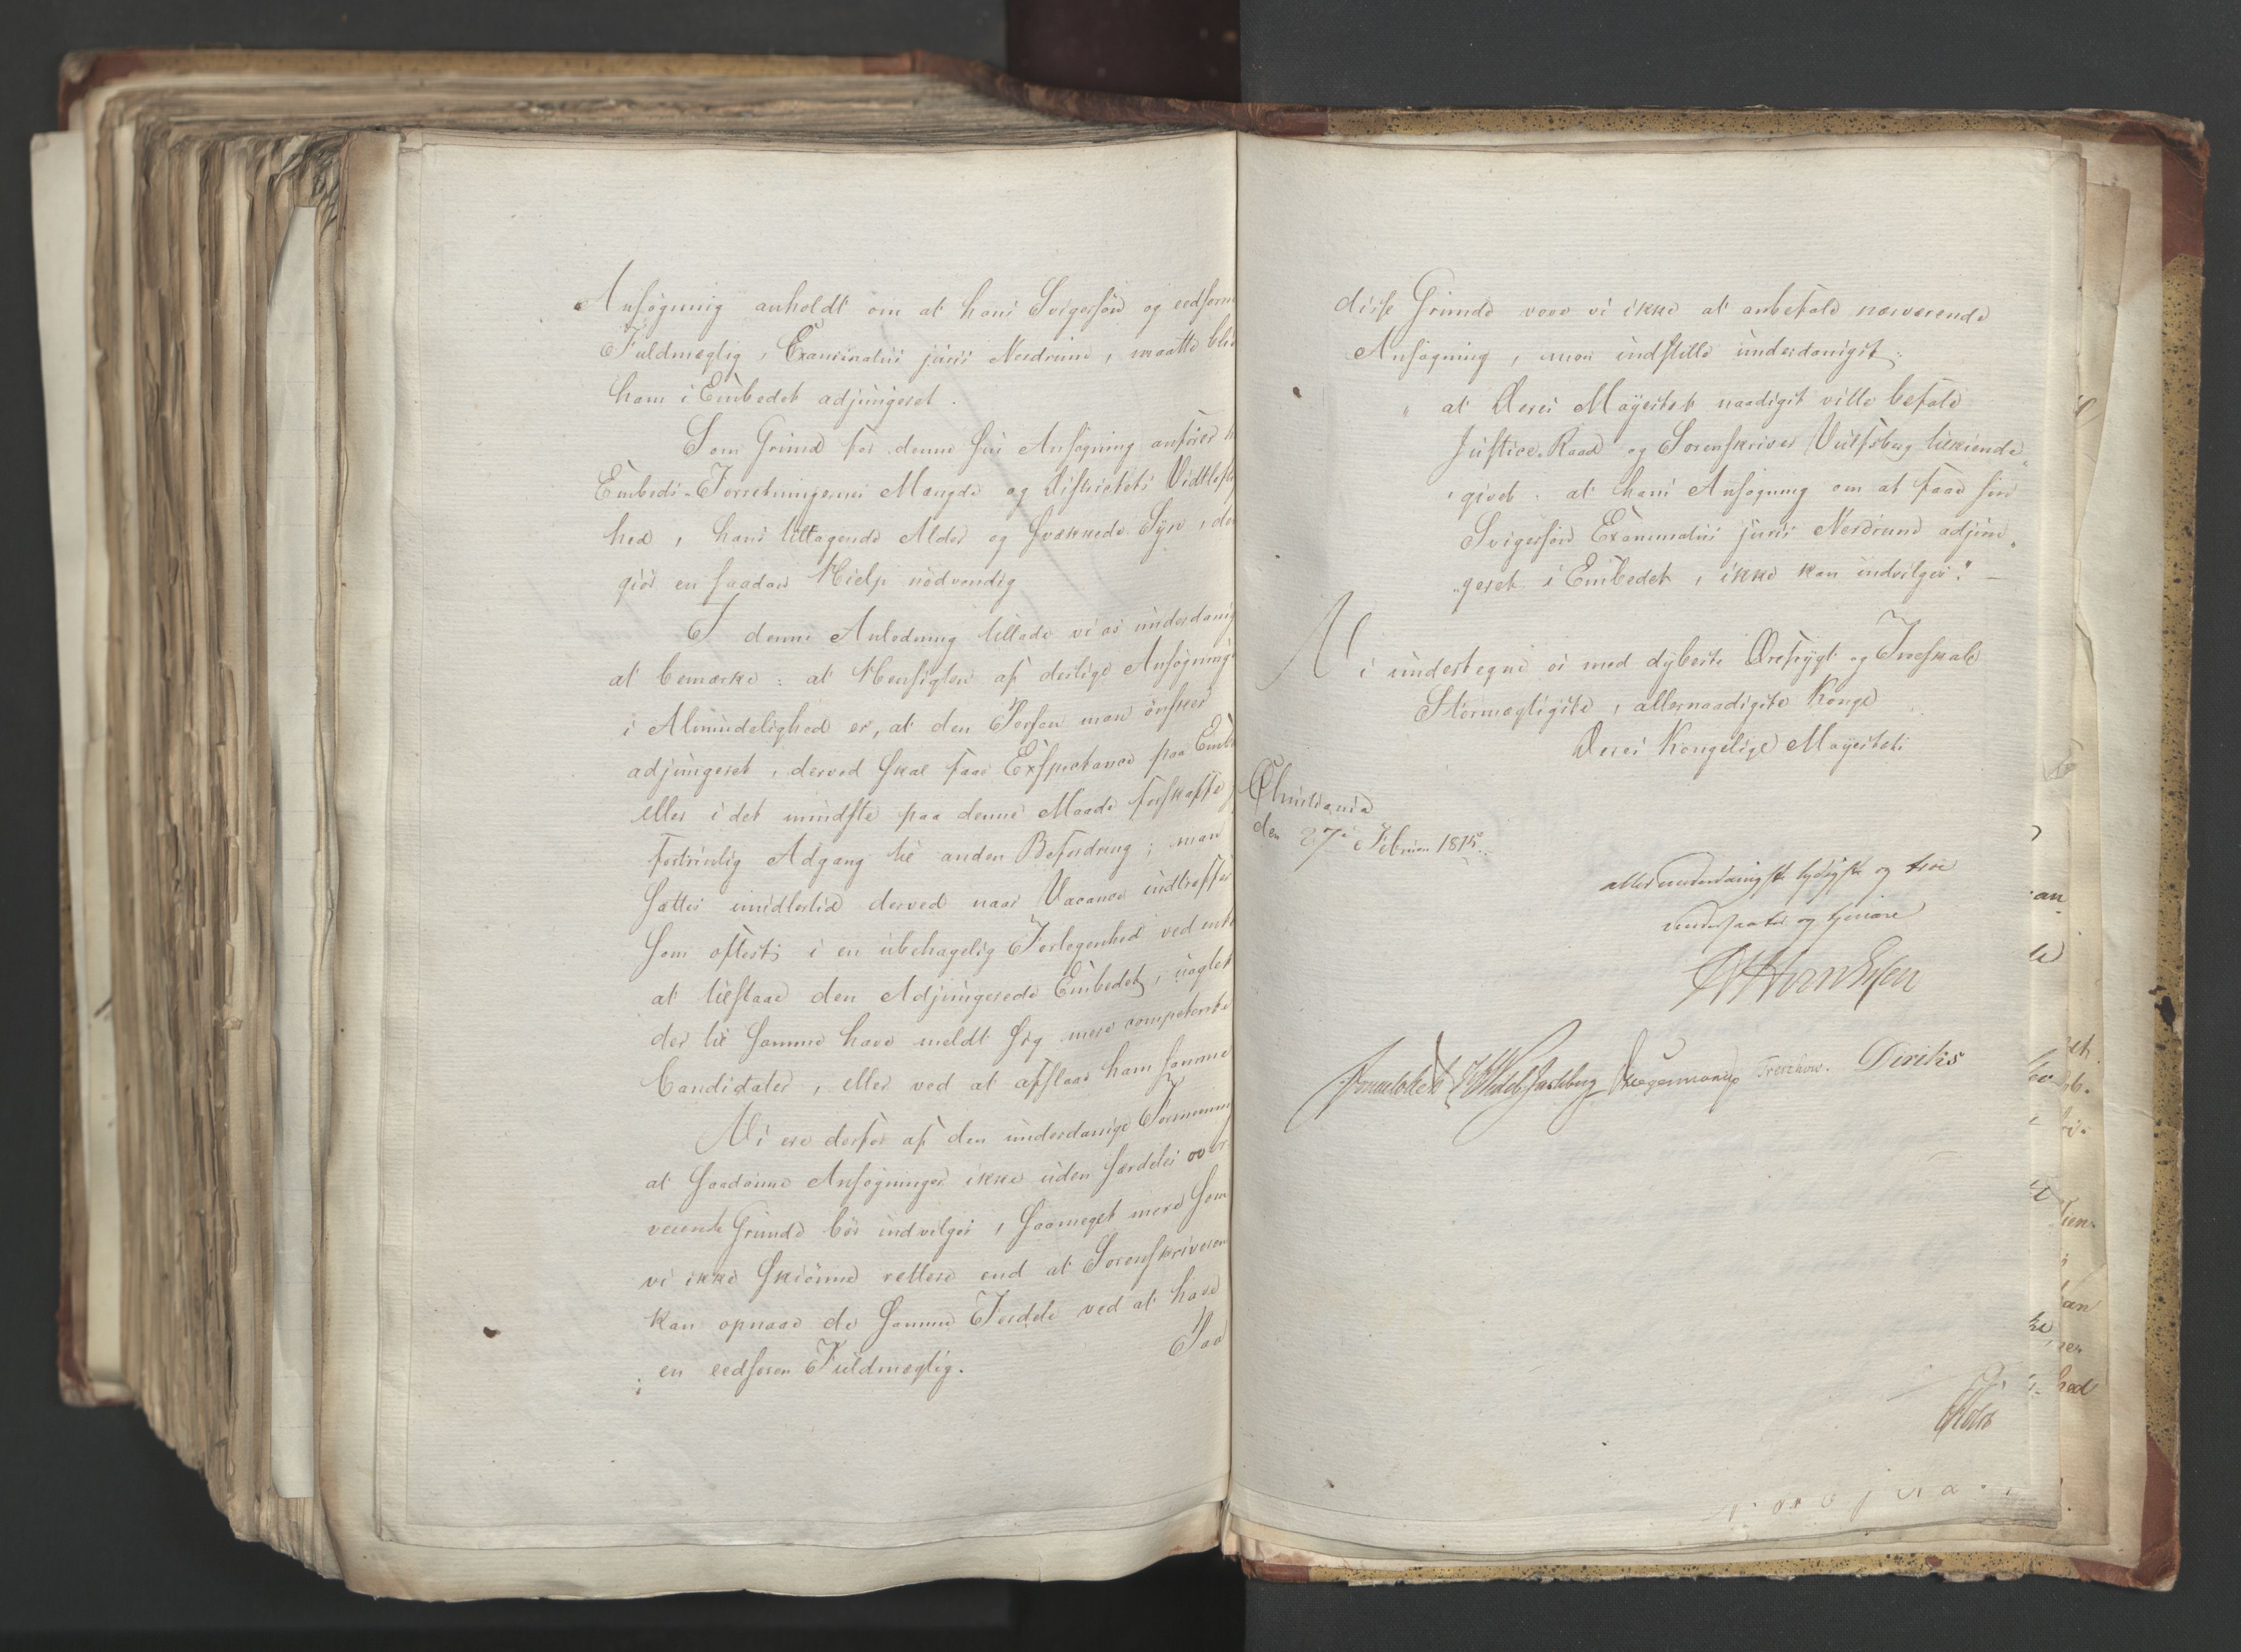 Ansøgning anholdt om at hans Svigersøn og eedsorn
Fuldmægtig, Examinatus juris Nerdrum, maatte bliv
ham i Embedet adjungeret.
Som Grund for denne sin Ansøgning anfører h
Embeds-Forretningernes Mængde og Districtets Vidtløftig
hed, hans tiltagende Alder og svækkede Syn, der
giør en saadan Hielp nødvendig
I denne Anledning tillade vi os underdanig
at bemærke: at Hensigten af deslige Ansøgninge
i Almindelighed er, at den Person man ønsker
adjungeret, derved skal faae Exspectance paa Embe
eller i det mindste paa denne Maade forskaffe
fortrinlig Adgang til anden Befordring; man
sættes imidlertid derved naar Vacance indtræffer
som oftest i en ubehagelig Forlegenhed ved ent
at tilstaae den Adjungerede Embedet, uagtet
der til samme have meldt sig mere competente
Candidater, eller ved at afslaae ham samme
Vi ere derfor af den underdanige Formening
at saadanne Ansøgninger ikke uden særdeles over
veiende Grunde bør indvilges, saameget mere som
vi ikke skiønne rettere end at Sorenskriveren
kan opnaae de samme Fordele ved at have
en eedsoren Fuldmægtig.
Paa
disse Grunde vove vi ikke at anbefale nærværende
Ansøgning, men indstille underdanigst:
" at Deres Majestæt naadigst ville befale
Justice-Raad og Sorenskriver Vulfsberg tilkiende„
„givet: at hans Ansøgning om at faae sin
Svigersøn Examinatus juris Nerdrum adjun„
„geret i Embedet, ikke kan indvilges." —
Vi undertegne os med dybeste Ærefrygt og Troeskab
Stormægtigste, allernaadigste Konge
Deres Kongelige Majestæts
Christiania
den 27de Februar 1815.
allerunderdanigste lydigste og troe
undersaatter og tjenere
Sommerhielm Wedel Jarlsberg Krogh Treschow. Diriks